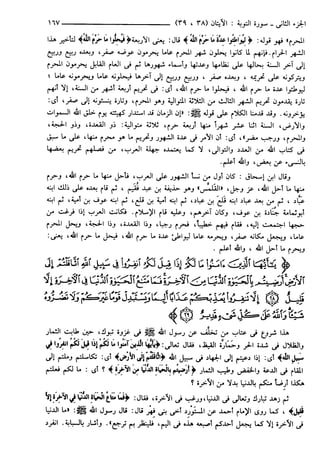 الجزء الثاني - سورة التوبة : الأيتان (٣٨ ، ٣٩)
١٦٧
المحرم» فهو قوله: ﴿لِيُوَاطِئُوا عِدَّةَ مَا حَرَّمَ اللَّهُ﴾ قال: يعني الأربعة ﴿فَيُحِلُّوا مَا حَرَّمَ اللَّهُ﴾ لتأخير هذا
الشهر الحرام. فإنهم لما كانوا يحلون شهر المحرم عاما يحرمون عوضه صفر، وبعده ربيع وربيع
إلى آخر السنة بحالها على نظامها وعدتها وأسماء شهورها ثم في العام القابل يحرمون المحرم
ويتركونه على تحريمه ، وبعده صفر ، وربيع وربيع إلى آخرها فيحلونه عاما ويحرمونه عاما ؛
ليواطئوا عدة ما حرم الله ، فيحلوا ما حرم الله، أي: في تحريم أربعة أشهر من السنة، إلا أنهم
تارة يقدمون تحريم الشهر الثالث من الثلاثة المتوالية وهو المحرم، وتارة ينسئونه إلى صفر، أي:
يؤخرونه. وقد قدمنا الكلام على قوله ﷺ: «إن الزمان قد استدار كهيئته يوم خلق الله السموات
والأرض، السنة اثنا عشر شهرا منها أربعة حرم، ثلاثة متوالية: ذو القعدة، وذو الحجة،
والمحرم، ورجب مضر»، أي: أن الأمر في عدة الشهور وتحريم ما هو محرم منها، على ما سبق
في كتاب الله من العدد والتوالي، لا كما يعتمده جهلة العرب، من فصلهم تحريم بعضها
بالنسيء عن بعض، والله أعلم.
وقال ابن إسحاق : كان أول من نسأ الشهور على العرب، فأحل منها ما حرم الله، وحرم
منها ما أحل الله، عز وجل، «القَلمَّس» وهو حذيفة بن عبد فُقَيم ، ثم قام بعده على ذلك ابنه
عَبَّاد ، ثم من بعد عباد ابنه قَلَع بن عباد، ثم ابنه أمية بن قلع، ثم ابنه عوف بن أمية، ثم ابنه
أبو ثمامة جنادة بن عوف، وكان آخرهم، وعليه قام الإسلام. فكانت العرب إذا فرغت من
حجها اجتمعت إليه، فقام فيهم خطيباً، فحرم رجبا، وذا القعدة، وذا الحجة، ويحل المحرم
عاما، ويجعل مكانه صفر، ويحرمه عاما ليواطئ عدة ما حرم الله، فيحل ما حرم الله، يعني:
ويحرم ما أحل الله ، والله أعلم .
﴿يَا أَيُّهَا الَّذِينَ آمَنُوا مَا لَكُمْ إِذَا قِيلَ لَكُمُ انْفِرُوا فِي سَبِيلِ اللَّهِ اثَّاقَلْتُمْ
إِلَى الْأَرْضِ أَرَضِيتُمْ بِالْحَيَاةِ الدُّنْيَا مِنَ الْآخِرَةِ فَمَا مَتَاعُ الْحَيَاةِ الدُّنْيَا فِي الْآخِرَةِ إِلَّا
قَلِيلٌ (٣٨) إِلَّا تَنْفِرُوا يُعَذِّبْكُمْ عَذَابًا أَلِيمًا وَيَسْتَبْدِلْ قَوْمًا غَيْرَكُمْ وَلَا تَضُرُّوهُ شَيْئًا
وَاللَّهُ عَلَى كُلِّ شَيْءٍ قَدِيرٌ (٣٩)﴾
هذا شروع في عتاب من تخلَّف عن رسول الله ﷺ في غزوة تبوك، حين طابت الثمار
والظلال في شدة الحر وحَمَارَّة القيظ، فقال تعالى: ﴿يَا أَيُّهَا الَّذِينَ آمَنُوا مَا لَكُمْ إِذَا قِيلَ لَكُمُ انْفِرُوا فِي
سَبِيلِ اللَّهِ﴾ أي: إذا دعيتم إلى الجهاد في سبيل الله ﴿اثَّاقَلْتُمْ إِلَى الْأَرْضِ﴾ أي: تكاسلتم وملتم إلى
المقام في الدعة والخفض وطيب الثمار ﴿أَرَضِيتُمْ بِالْحَيَاةِ الدُّنْيَا مِنَ الْآخِرَةِ﴾ أي : ما لكم فعلتم
هكذا أرضاً منكم بالدنيا بدلا من الآخرة ؟
ثم زهد تبارك وتعالى في الدنيا، ورغب في الآخرة، فقال: ﴿فَمَا مَتَاعُ الْحَيَاةِ الدُّنْيَا فِي الْآخِرَةِ إِلَّا
قَلِيلٌ﴾، كما روى الإمام أحمد عن المستورد أخي بني فهر قال: قال رسول الله ﷺ: «ما الدنيا
في الآخرة إلا كما يجعل أحدكم أصبعه هذه في اليم، فلينظر بم ترجع؟». وأشار بالسبابة. انفرد